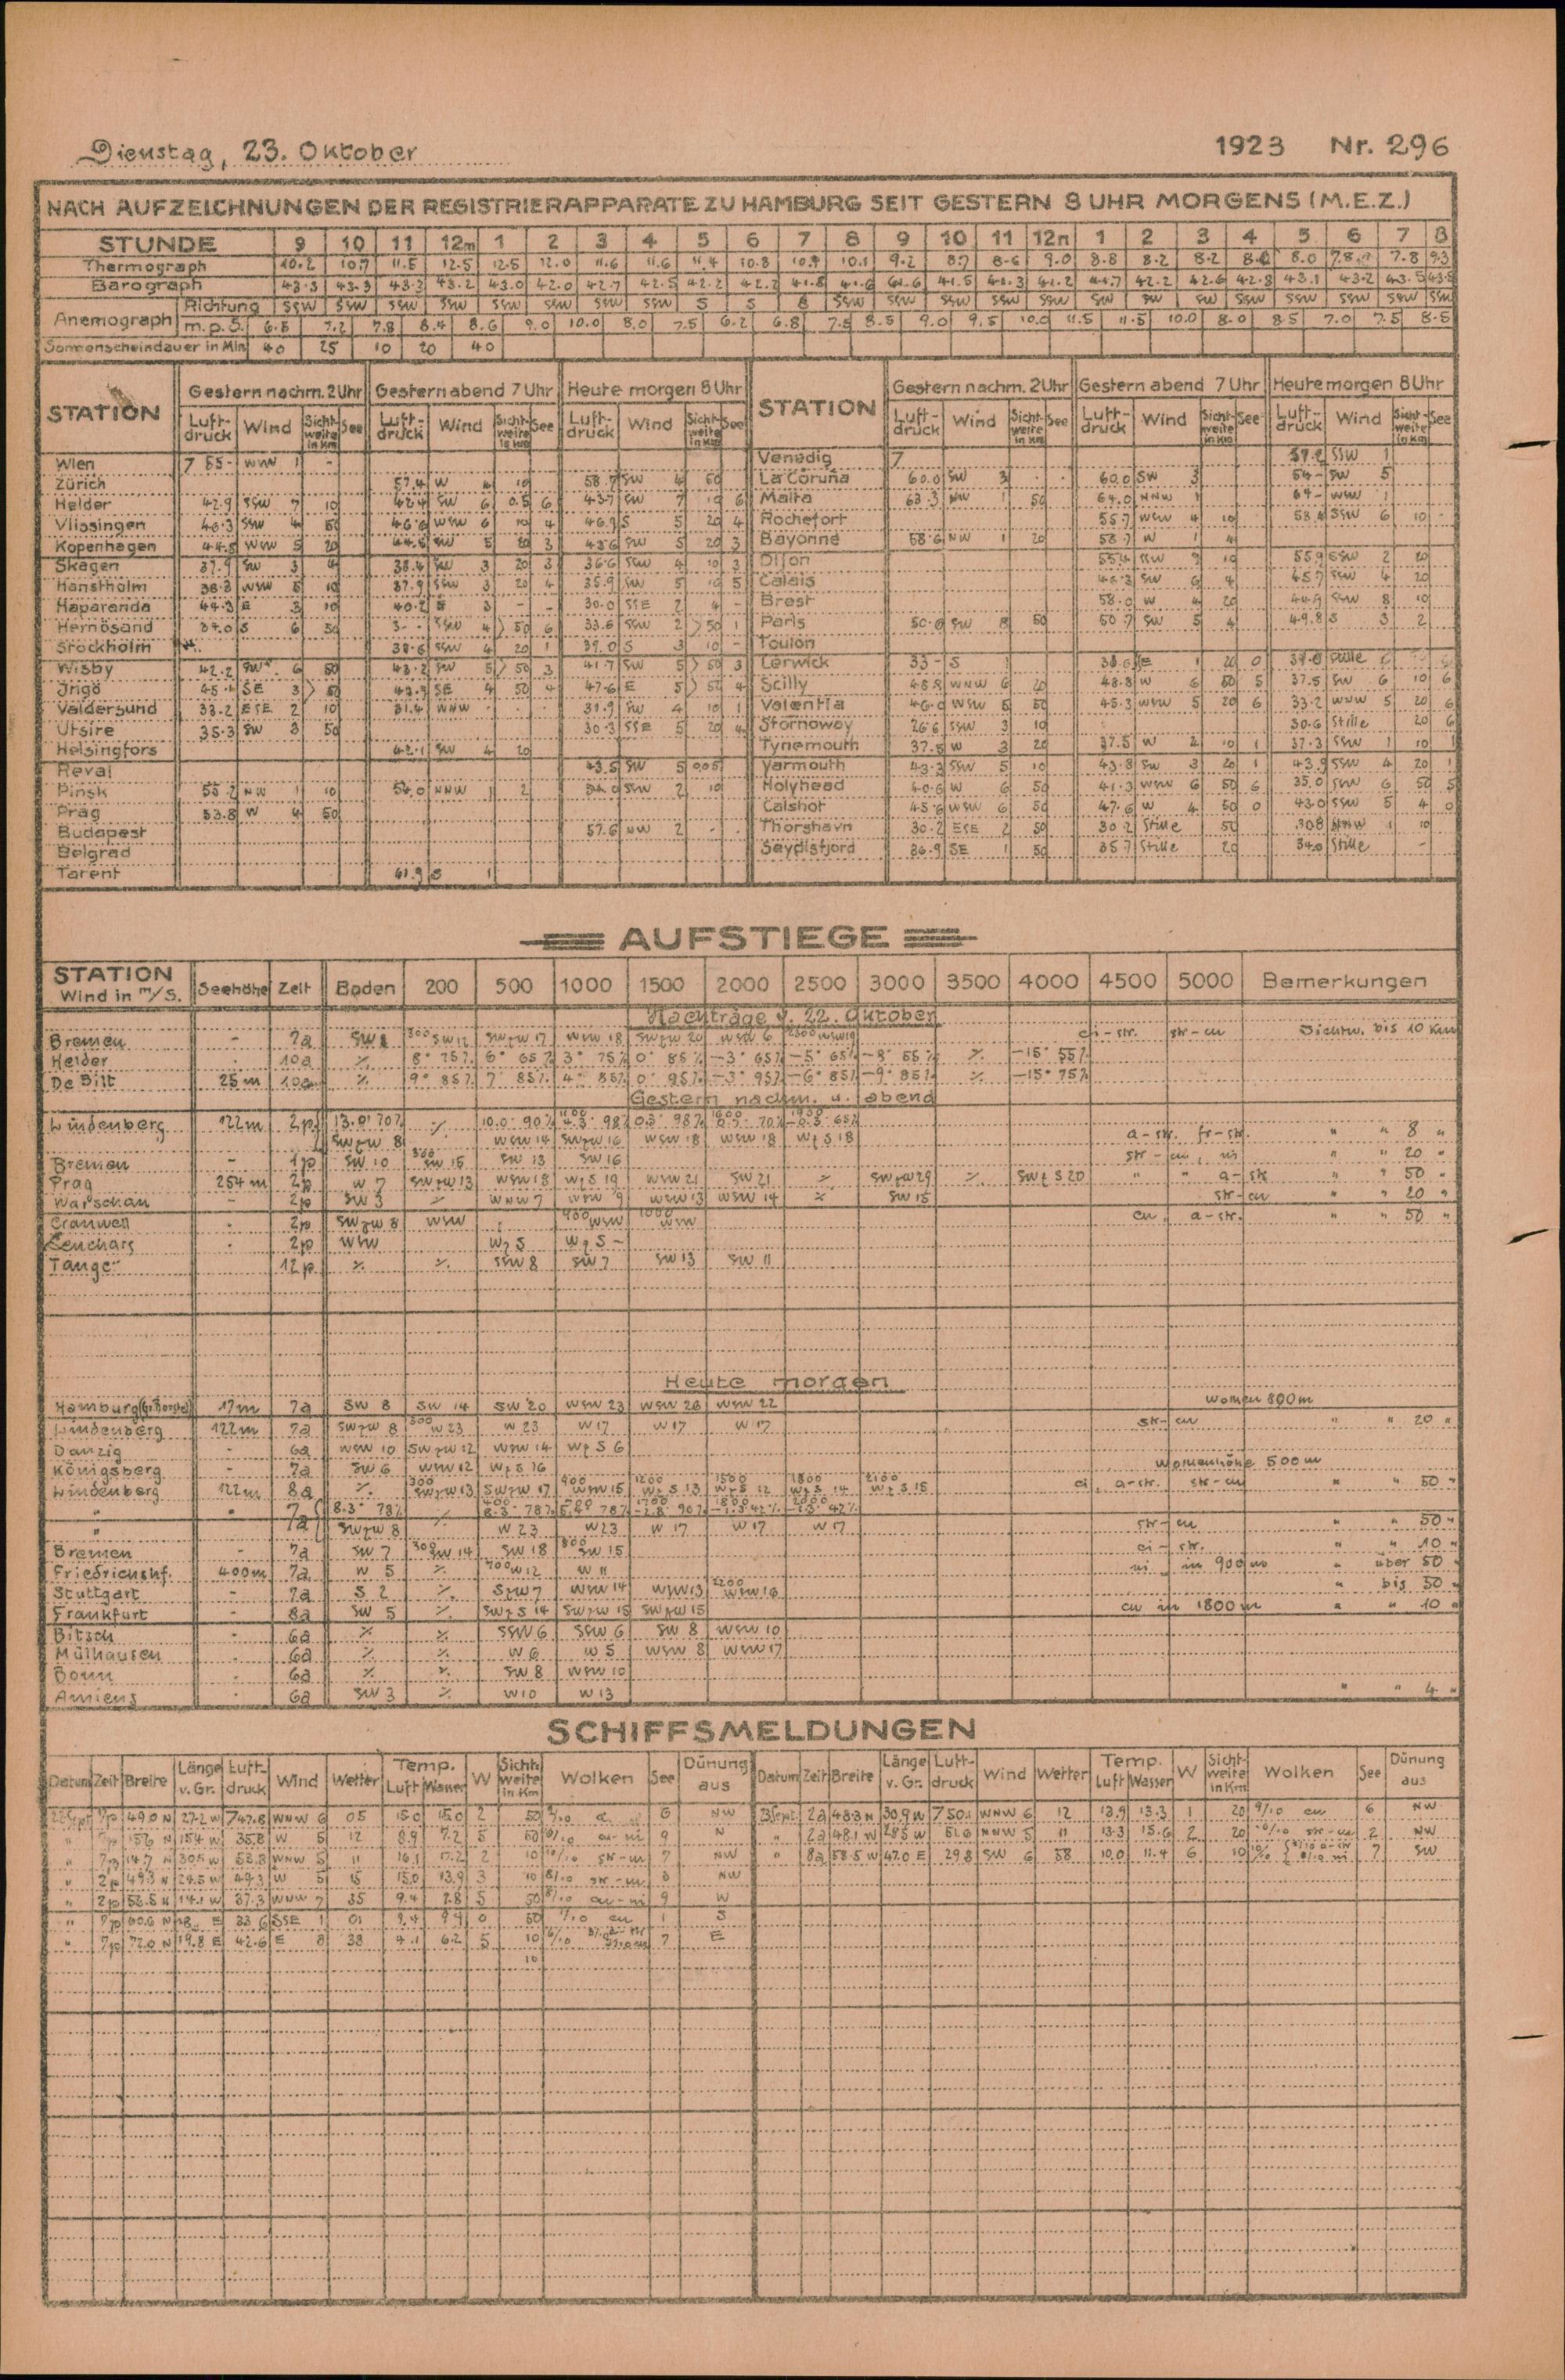 Dienstag, 23. Oktober 1923 Nr. 296
NACH AUFZEICHNUNGEN DER REGISTRIERAPPARATE ZU HAMBURG SEIT GESTERN 8 UHR MORGENS (M.E.Z.)
STUNDE 9 10 11 12m 1 2 3 4 5 6 7 8 9 10 11 12n 1 2 3 4 5 6 7 8
Thermograph 10.2 10.7 11.5 12.5 12.5 12.0 11.6 11.6 11.4 10.8 10.1 9.2 8.7 8.6 9.0 8.8 8.2 8.2 8.0 7.8 9.3
Barograph 43.3 43.3 43.3 43.2 43.0 42.0 42.7 42.5 42.2 42.2 41.8 41.6 41.6 41.5 41.3 41.2 41.7 42.2 42.6 42.8 43.1 43.2 43.5
Anemograph Richtung SSW SSW SSW SSW SSW SSW SSW SSW S S S SSW SSW SSW SSW SSW SW SW SW SSW SSW SSW SSW SSW
m.p.S. 6.8 7.2 7.8 8.4 8.6 9.0 10.0 8.0 7.5 6.2 6.8 7.5 8.5 9.0 9.5 10.0 11.5 11.5 10.0 8.0 8.5 7.0 7.5 8.5
Sonnenscheindauer in Min 40 25 10 20 40
STATION Gestern nachm. 2 Uhr Gestern abend 7 Uhr Heute morgen 8 Uhr STATION Gestern nachm. 2 Uhr Gestern abend 7 Uhr Heute morgen 8 Uhr
Luft-druck Wind Sicht-weite in Km See Luft-druck Wind Sicht-weite in Km See Luft-druck Wind Sicht-weite in Km See Luft-druck Wind Sicht-weite in Km See Luft-druck Wind Sicht-weite in Km See Luft-druck Wind Sicht-weite in Km See
Wien 7 55- WNW 1 - Venedig 7 57.2 SSW 1
Zürich 57.4 W 4 10 58.7 SW 4 50 La Coruña 60.0 SW 3 60.0 SW 3 54- SW 5
Helder 42.9 SSW 7 10 42.4 SW 6 0.5 6 43.7 SW 7 10 6 Malta 63.3 NW 1 50 64.0 NNW 1 64- WSW 1
Vlissingen 46.3 SSW 4 50 46.6 WSW 6 10 4 46.9 S 5 20 4 Rochefort 55.7 WSW 4 10 58.4 SSW 6 10
Kopenhagen 44.5 WSW 5 20 44.5 SW 5 20 3 45.6 SW 5 20 3 Bayonne 58.6 NW 1 20 58.7 W 1 4
Skagen 37.9 SW 3 4 38.4 SW 3 20 3 36.6 SSW 4 10 3 Dijon 55.4 SSW 10 55.9 SSW 2 20
Hanstholm 38.3 WSW 5 10 37.9 SSW 3 20 4 35.9 SW 5 10 5 Calais 46.3 SW 6 4 45.7 SSW 4 20
Haparanda 44.3 E 3 10 40.2 E 3 - - 30.0 SSE 2 4 - Brest 58.0 W 4 20 44.9 SSW 8 10
Hernösand 37.0 S 6 50 SSW 4 >50 6 33.6 SSW 2 >50 1 Paris 50.0 SW 8 50 50.7 SW 5 4 49.8 S 3 2
Stockholm 38.6 SSW 4 20 1 39.0 S 3 10 - Toulon
Wisby 42.2 SW 6 50 43.2 SW 5 >50 3 41.7 SW 5 >50 3 Lerwick 33- S 1 E 1 20 0 Stille
Jngö 45.1 SE 3 >50 SE 4 50 4 47.6 E 5 >50 4 Scilly 48.5 WNW 6 20 48.8 W 6 50 5 37.5 SW 6 10 6
Valdersund 33.2 ESE 2 10 31.4 WNW 31.9 SW 4 10 1 Valentia 46.0 WSW 5 50 45.3 WSW 5 20 6 33.2 WNW 5 20 6
Utsire 35.3 SW 3 50 30.3 SSE 5 20 4 Stornoway 26.6 SSW 3 10 30.6 Stille 20 6
Helsingfors 42.1 SW 4 20 Tynemouth 37.5 W 3 20 37.5 W 2 10 1 37.3 SSW 1 10 1
Reval 43.5 SW 5 0.05 Yarmouth 43.3 SSW 5 10 43.8 SW 3 20 1 43.9 SSW 4 20 1
Pinsk 55.2 NW 1 10 54.0 NNW 1 2 54.0 SSW 2 10 Holyhead 40.6 W 6 50 41.3 WNW 6 50 6 35.0 SSW 6 50 5
Prag 53.8 W 4 50 Calshot 45.6 WSW 6 50 47.6 W 4 50 0 43.0 SSW 5 4 0
Budapest 57.6 NW 2 - - Thorshavn 30.2 ESE 2 50 30.2 Stille 50 30.8 NNW 1 10
Belgrad Seydisfjord 36.9 SE 1 50 35.7 Stille 20 34.0 Stille -
Tarent 61.9 S 1
AUFSTIEGE
STATION Wind in m/S. Seehöhe Zeit Boden 200 500 1000 1500 2000 2500 3000 3500 4000 4500 5000 Bemerkungen
Nachträge v. 22. Oktober
Bremen - 7a SW 8 300 SW 12 SWzW 17 WSW 18 SWzW 20 WSW 6 ci-str. str-cu Sichtw. bis 10 Km
Helder 10a % 8° 75% 6° 65% 3° 75% 0° 85% -3° 65% -5° 65% -8° 55% % -15° 55%
De Bilt 25m 10a % 9° 85% 7° 85% 4° 85% 0° 95% -3° 95% -6° 85% -9° 85% % -15° 75%
Gestern nachm. u. abend
Lindenberg 122m 2p 13.0° 70% % 10.0° 90% 4.3° 98% 0.3° 98% 70% 65%
SWzW 8 WSW 14 SWzW 16 WSW 18 WSW 18 WzS 18 a-str. fr-str. " " 8 "
Bremen - 1p SW 10 300 SW 15 SW 13 SW 16 str-cu, ni " " 20 "
Prag 254m 2p W 7 SWzW 13 WSW 18 WzS 19 WSW 21 SW 21 % SWzW 29 % SWzS 20 " " a-str " " 50 "
Warschau - 2p SW 3 % WNW 7 WSW 9 WSW 13 WSW 14 % SW 15 str-cu " " 20 "
Cranwell 2p SWzW 8 WSW 900 WSW 1000 WSW cu a-str. " " 50 "
Leuchars 2p WSW WzS WzS -
Tanger 12p % % SSW 8 SW 7 SW 13 SW 11
Heute morgen
Hamburg (Gr. Borstel) 17m 7a SW 8 SW 14 SW 20 WSW 23 WSW 26 WSW 22 Wolken 800m
Lindenberg 122m 7a SWzW 8 300 W 23 W 23 W 17 W 17 W 17 str-cu " " 20 "
Danzig - 6a WSW 10 SWzW 12 WSW 14 WzS 6
Königsberg - 7a SW 6 WSW 12 WzS 16 Wolkenhöhe 500m
Lindenberg 122m 8a % 300 SWzW 13 SWzW 17 900 WSW 15 1200 WzS 13 1500 WzS 12 1800 WzS 14 2100 WzS 15 ci, a-str. str-cu " " 50 "
" " 7a 8.3° 78% % 400 8.3° 78% 78% 1700 90% 1800 42% 2000 42%
" SWzW 8 W 23 W 23 W 17 W 17 W 17 str-cu " " 50 "
Bremen - 7a SW 7 300 SW 14 SW 18 800 SW 15 ci-str. " " 10 "
Friedrichshf. 400m 7a W 5 % 700 W 12 W 11 ni in 900m " über 50 "
Stuttgart - 7a S 2 % SzW 7 WSW 14 WSW 13 2200 WSW 16 " bis 50 "
Frankfurt - 8a SW 5 % SWzS 14 SWzW 15 SWzW 15 cu in 1800m " " 10 "
Bitsch 6a % % SSW 6 SSW 6 SW 8 WSW 10
Mülhausen 6a % % W 6 W 5 WSW 8 WSW 17
Bonn 6a % % SW 8 WSW 10
Amiens 6a SW 3 % W 10 W 13 " " 4 "
SCHIFFSMELDUNGEN
Datum Zeit Breite Länge v. Gr. Luft-druck Wind Wetter Temp. Luft Wasser W Sicht-weite in Km Wolken See Dünung aus Datum Zeit Breite Länge v. Gr. Luft-druck Wind Wetter Temp. Luft Wasser W Sicht-weite in Km Wolken See Dünung aus
22 Sept 7p 49.0 N 27.2 W 747.8 WNW 6 05 15.0 15.0 2 50 6 NW 23 Sept. 2a 48.3 N 30.9 W 750.1 WNW 6 12 13.9 13.3 1 20 9/10 cu 6 NW
" W 35.8 W 5 12 8.9 7.2 5 50 cu-ni 9 N " 2a 48.1 W 28.5 W 51.6 NNW 5 11 13.3 15.6 2 20 str-cu 2 NW
" 7p 30.5 W 53.8 WNW 5 11 16.1 17.2 2 10 str-cu 7 NW " 8a 58.5 W 47.0 E 29.8 SW 6 58 10.0 11.4 6 10 7 SW
" 2p 49.3 N 24.5 W 49.3 W 5 15 15.0 13.9 3 10 8/10 str-cu NW
" 2p 53.5 N 14.1 W 37.3 WNW 7 35 9.4 7.8 5 50 cu-ni 9 W
" 7p 60.6 N E 33.6 SSE 1 01 9.4 9.4 0 50 cu 1 S
" 7p 72.0 N 19.8 E 42.6 E 8 38 4.1 6.2 5 10 7 E
10